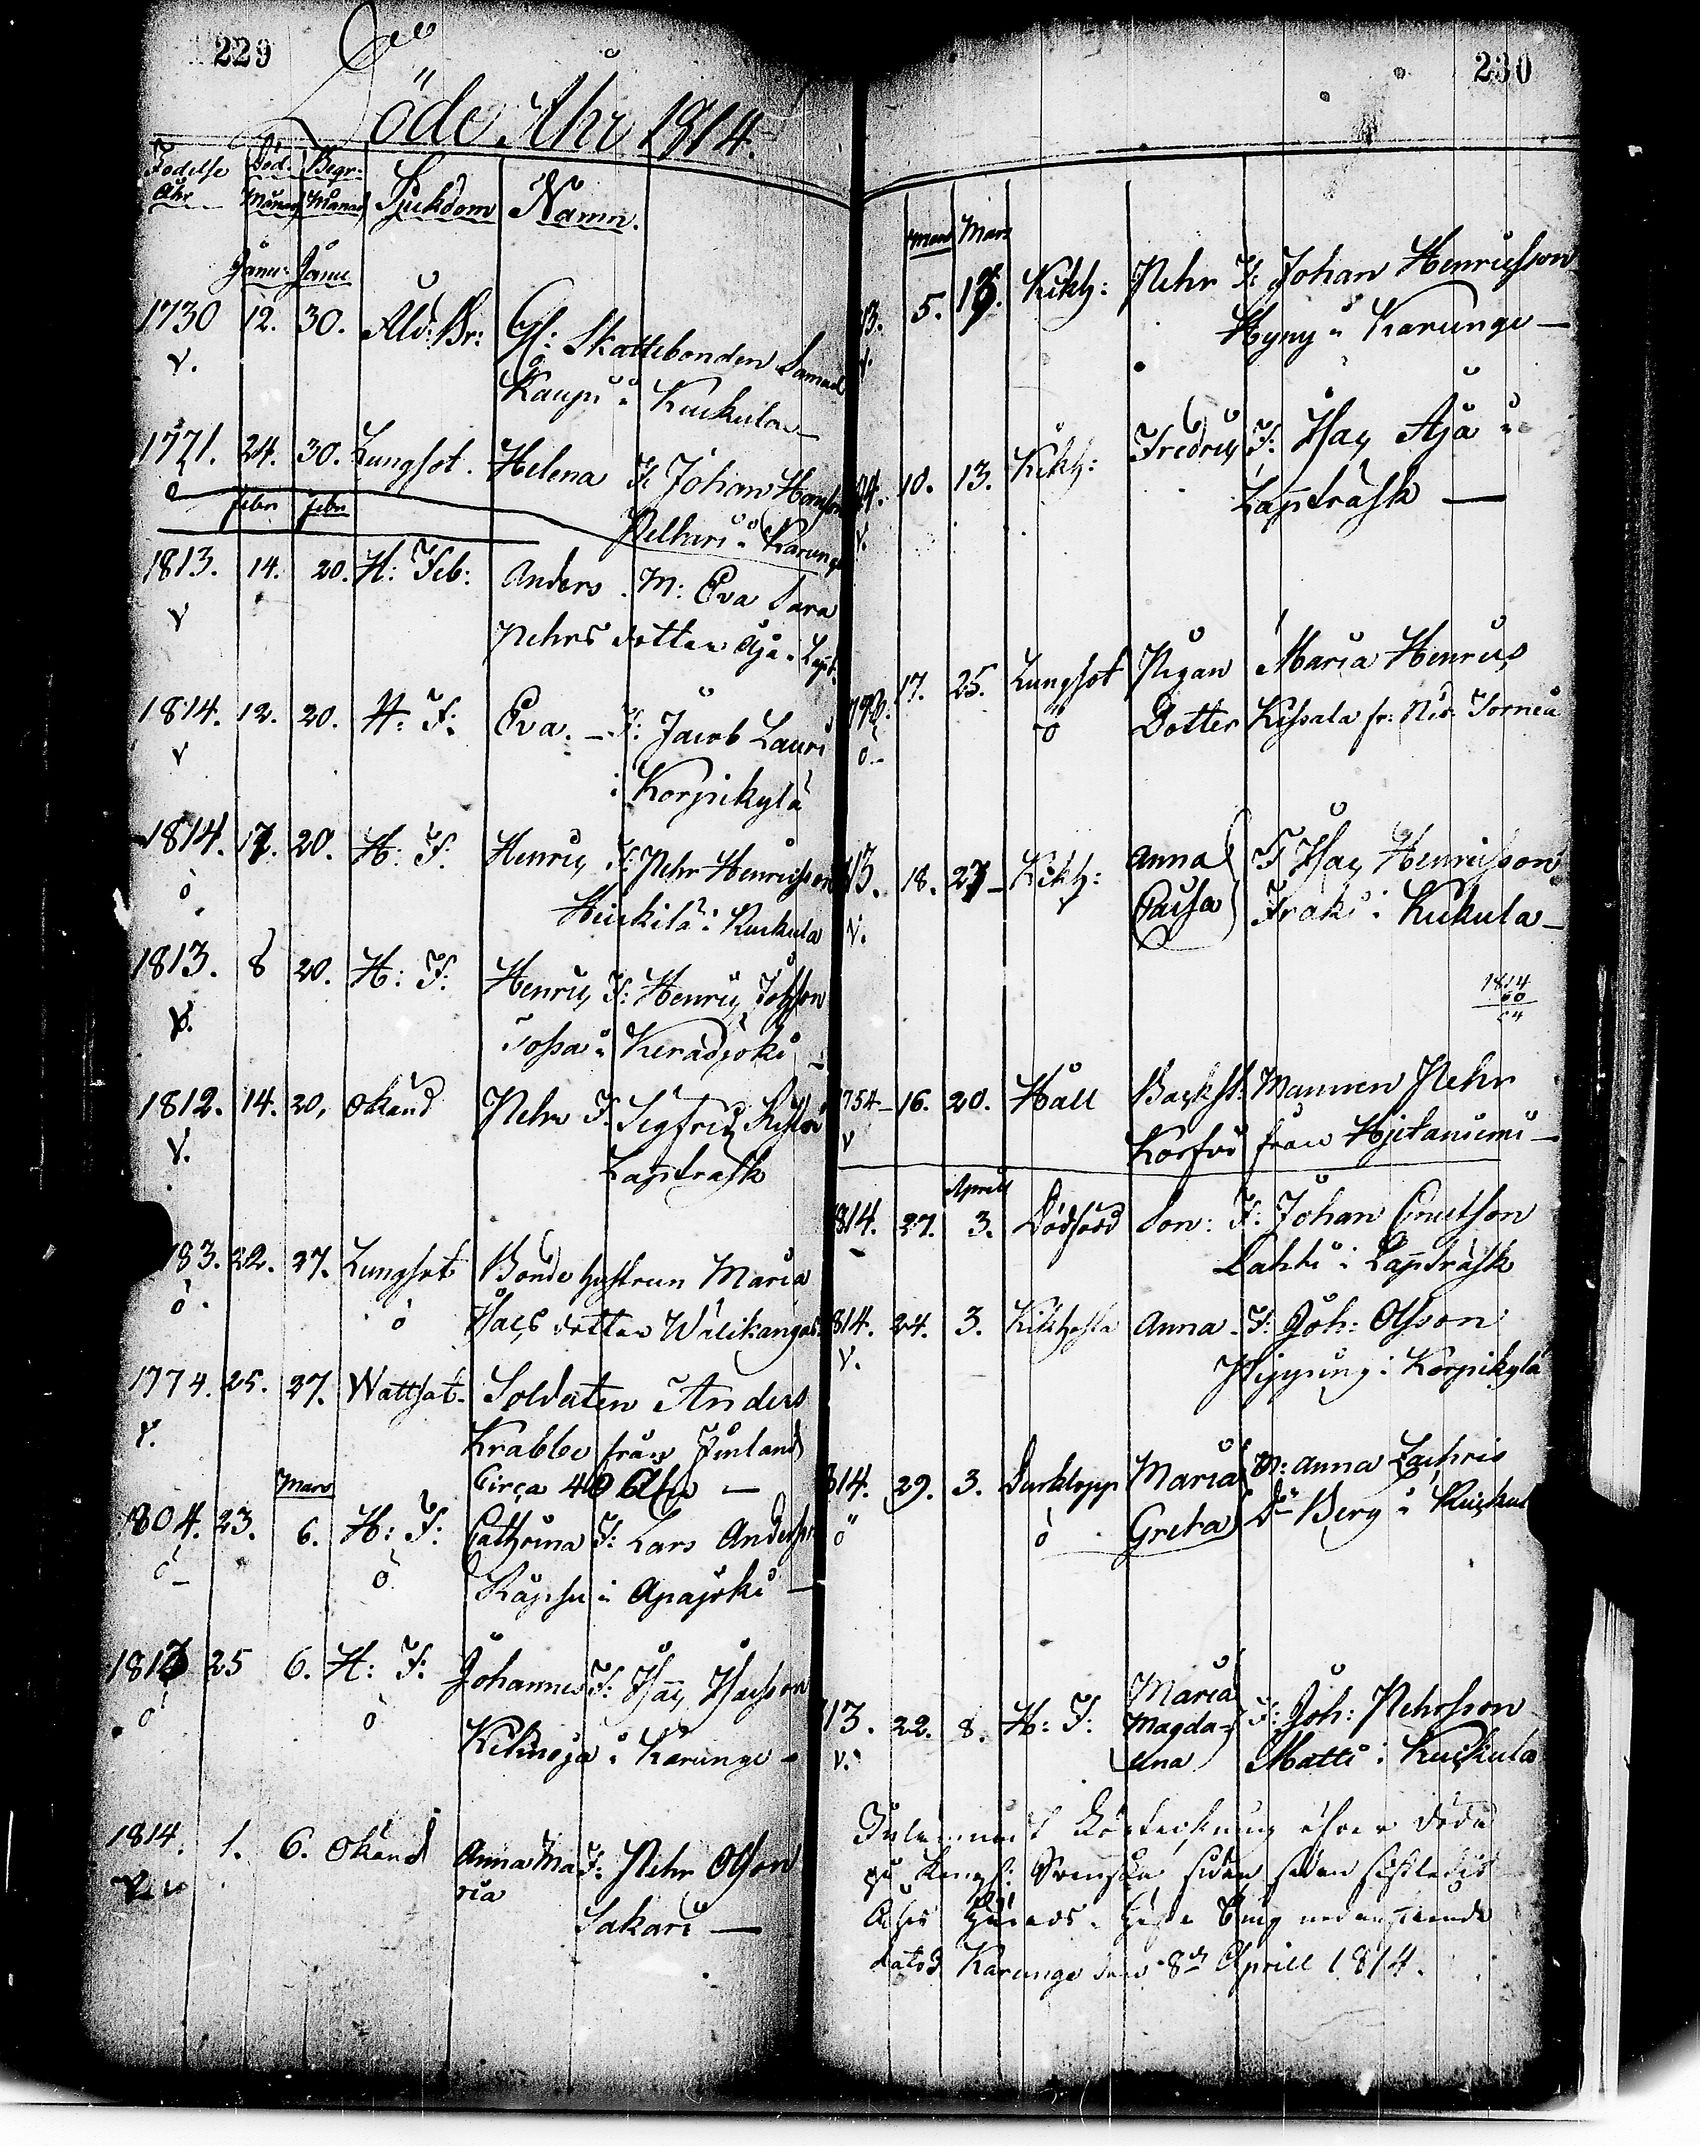 229
Döde Åhr 1814.
Födelse Åhr Död. Månad Begr. Månad Sjukdom Namn.
Janu: Janu
1730 12. 30. Åld: Br: Gl: Skattebonden Samuel
v. Kaupi i Kuckula
1771. 24. 30. Lungsot. Helena F: Johan Hansson
ö Pelkari i Karungi
febr febr
1813. 14. 20. H: Feb: Anders. M: Eva Sara
v Pehrs dotter Äjä i Lappt.
1814. 12. 20. H: F: Eva. F: Jacob Lauri
v i Korpikylä
1814. 17. 20. H: F: Henric F: Pehr Henricsson
ö Heickilä i Kuckula
1813. 8 20. H: F: Henric F: Henric Johsson
v. i Keräsjoki
1812. 14. 20, Okänd Pehr F: Sigfrid
v. Lappträsk
183. 22. 27. Lungsot Bonde hustrun Maria
ö. ö Isacs dotter Wälikangas
1774. 25. 27. Wattsot. Soldaten Anders
v. Krabbe från Finland
Circa 40 åhr —
Mars
1804. 23. 6. H: F: Cathrina F: Lars Anderss:
ö ö i Apajoki —
1813 25 6. H: F: Johannes F: Isac Isacsson
ö ö i Karungi
1814. 1. 6. Okänd Anna Ma F: Pehr Olsson
v. ria
Sakari —
230
Mars Mars
13. 5. 13. Kikh: Pehr F: Johan Henricsson
v. Hyny i Karungi —
10. 13. Kikh: Fredric F: Isac Äjä i
v. Lappträsk —
17. 25. Lungsot Pigan Maria Henrics
ö ö Dotter Kissala fr: Ned. Torneå
13. 18. 27 Kikh: Anna F Isac Henricsson
v. v Caisa i Kukula
1814
60
54
1754 16. 20. Håll Backst: Mannen Pehr
v från Hjetaniemi —
Aprill
1814. 27. 3. Dödfödd Son: F: Johan Enuetsson
Lahti i Lappträsk
1814. 24. 3. Kikhosta Anna. F: Joh: Olsson
v. i Korpikylä
814. 29. 3. Durklopp Maria M: Anna Zachris
ö ö Greta Dr Berg i Kuckul
13. 22. 8. H: F: Maria F: Joh: Pehrsson
v. Magda=
lena Matti i Kuckula
Förteckning öfver döde
på Svenska sidan sedan
datod Karungi den 8de Aprill 1814.